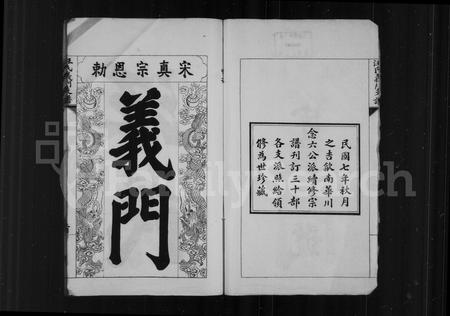 宋真宗恩勅
義門
民國七年秋月
之吉歙南華川
念六公派續修宗
譜刊訂三十部
各支派照給領
修為世珍藏
FamilySearch